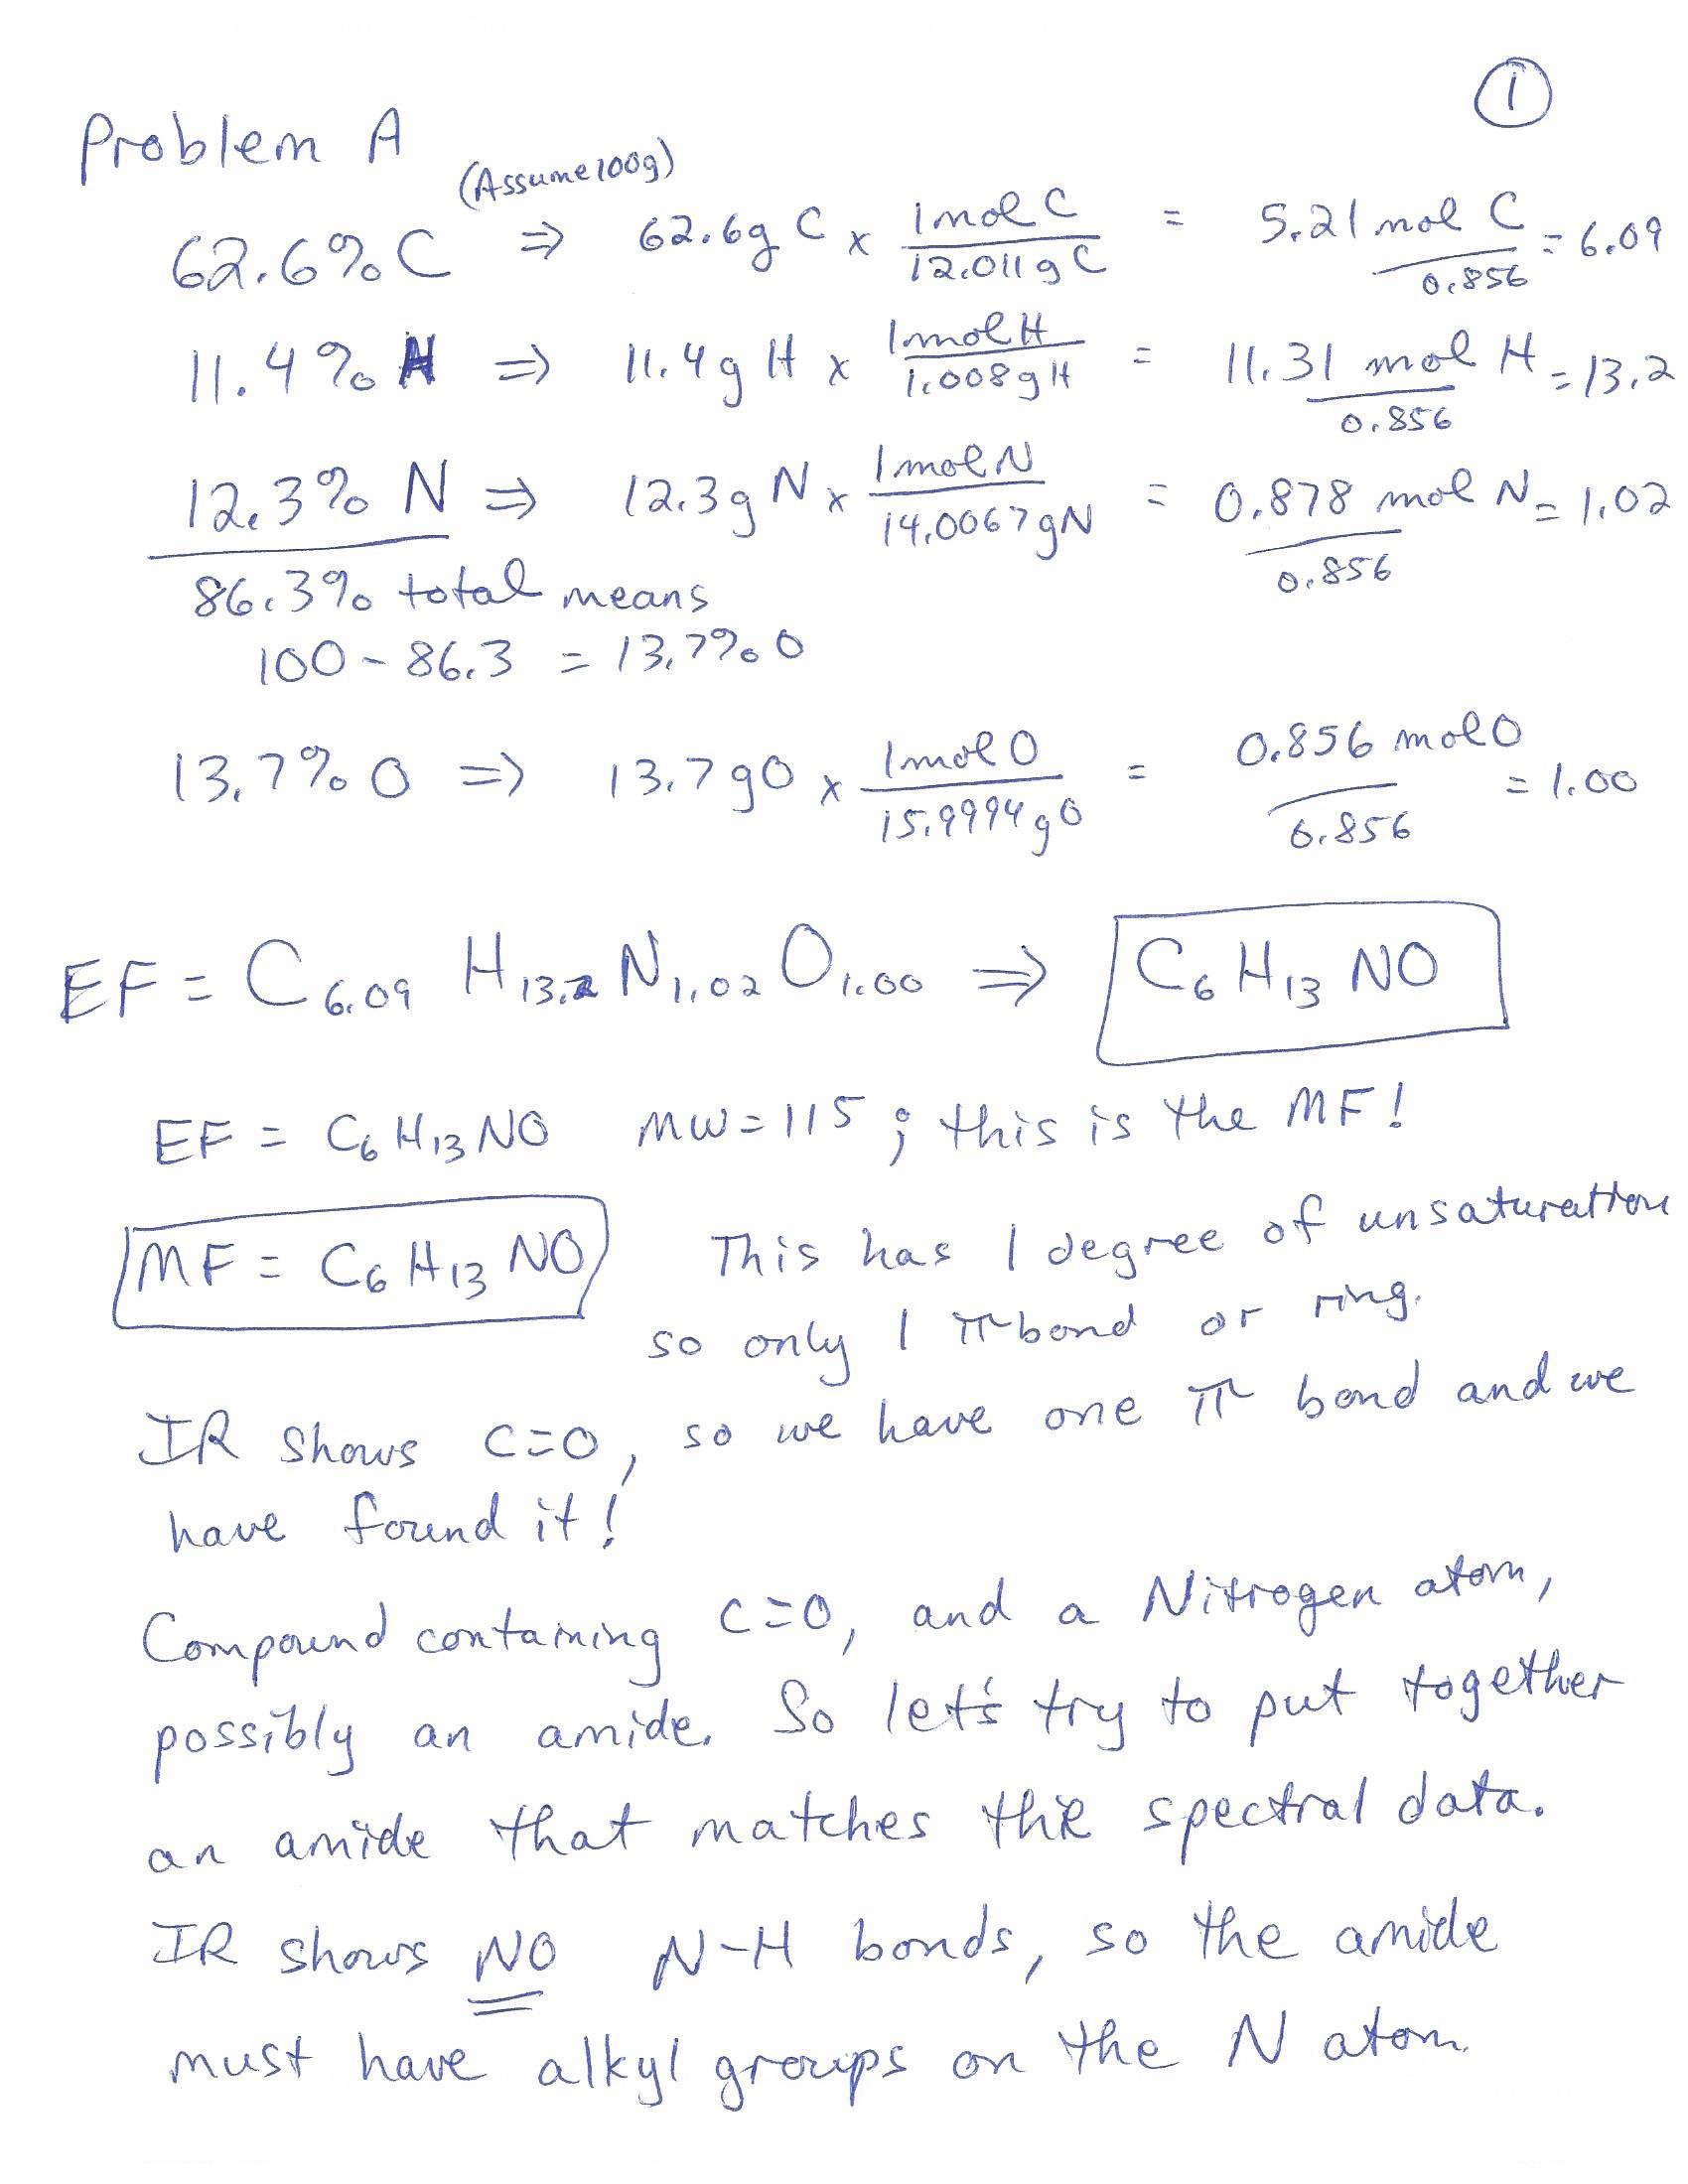 ①
Problem A
(Assume 100g)
62.6% C ⇒ 62.6g C x 1 mol C / 12.011 g C = 5.21 mol C / 0.856 = 6.09
11.4% H ⇒ 11.4g H x 1 mol H / 1.008 g H = 11.31 mol H / 0.856 = 13.2
12.3% N ⇒ 12.3g N x 1 mol N / 14.0067 g N = 0.878 mol N / 0.856 = 1.02
86.3% total means
100 - 86.3 = 13.7% O
13.7% O ⇒ 13.7 g O x 1 mol O / 15.9994 g O = 0.856 mol O / 0.856 = 1.00
EF = C6.09 H13.2 N1.02 O1.00 ⇒ C6H13NO
EF = C6H13NO MW = 115 ; this is the MF!
MF = C6H13NO This has 1 degree of unsaturation
so only 1 π bond or ring.
IR shows C=O, so we have one π bond and we
have found it!
Compound containing C=O, and a Nitrogen atom,
possibly an amide. So let's try to put together
an amide that matches the spectral data.
IR shows NO N-H bonds, so the amide
must have alkyl groups on the N atom.